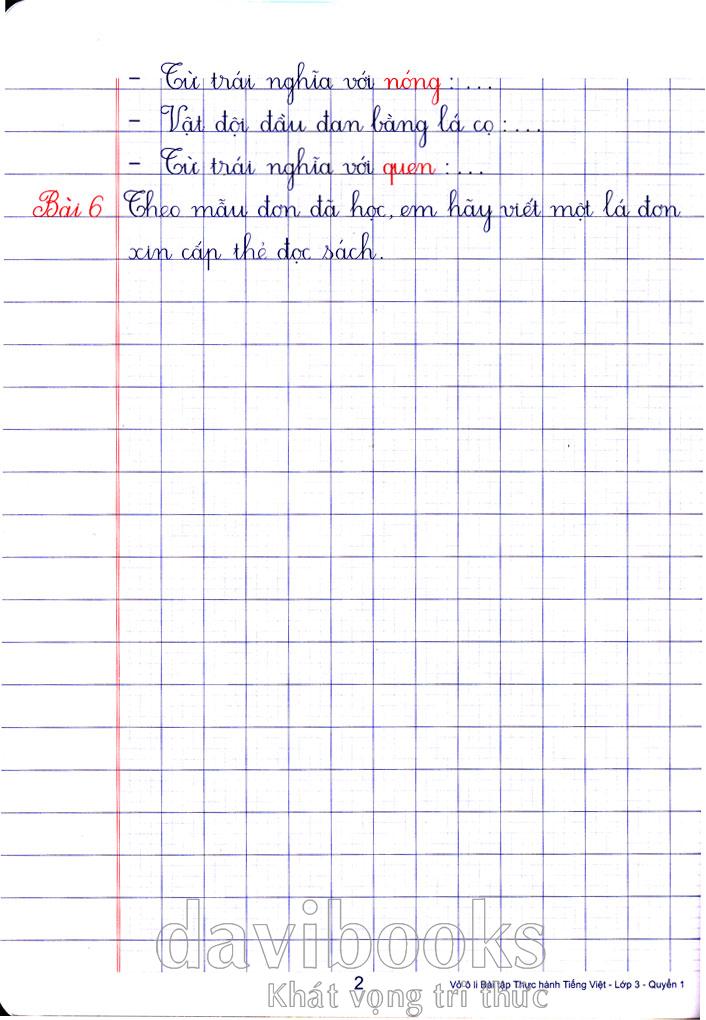 - Từ trái nghĩa với nóng : ...
- Vật đội đầu đan bằng lá cọ : ...
- Từ trái nghĩa với quen : ...
Bài 6 Theo mẫu đơn đã học, em hãy viết một lá đơn
xin cấp thẻ đọc sách.
davibooks
2 Vở ô li Bài tập Thực hành Tiếng Việt - Lớp 3 - Quyển 1
Khát vọng tri thức